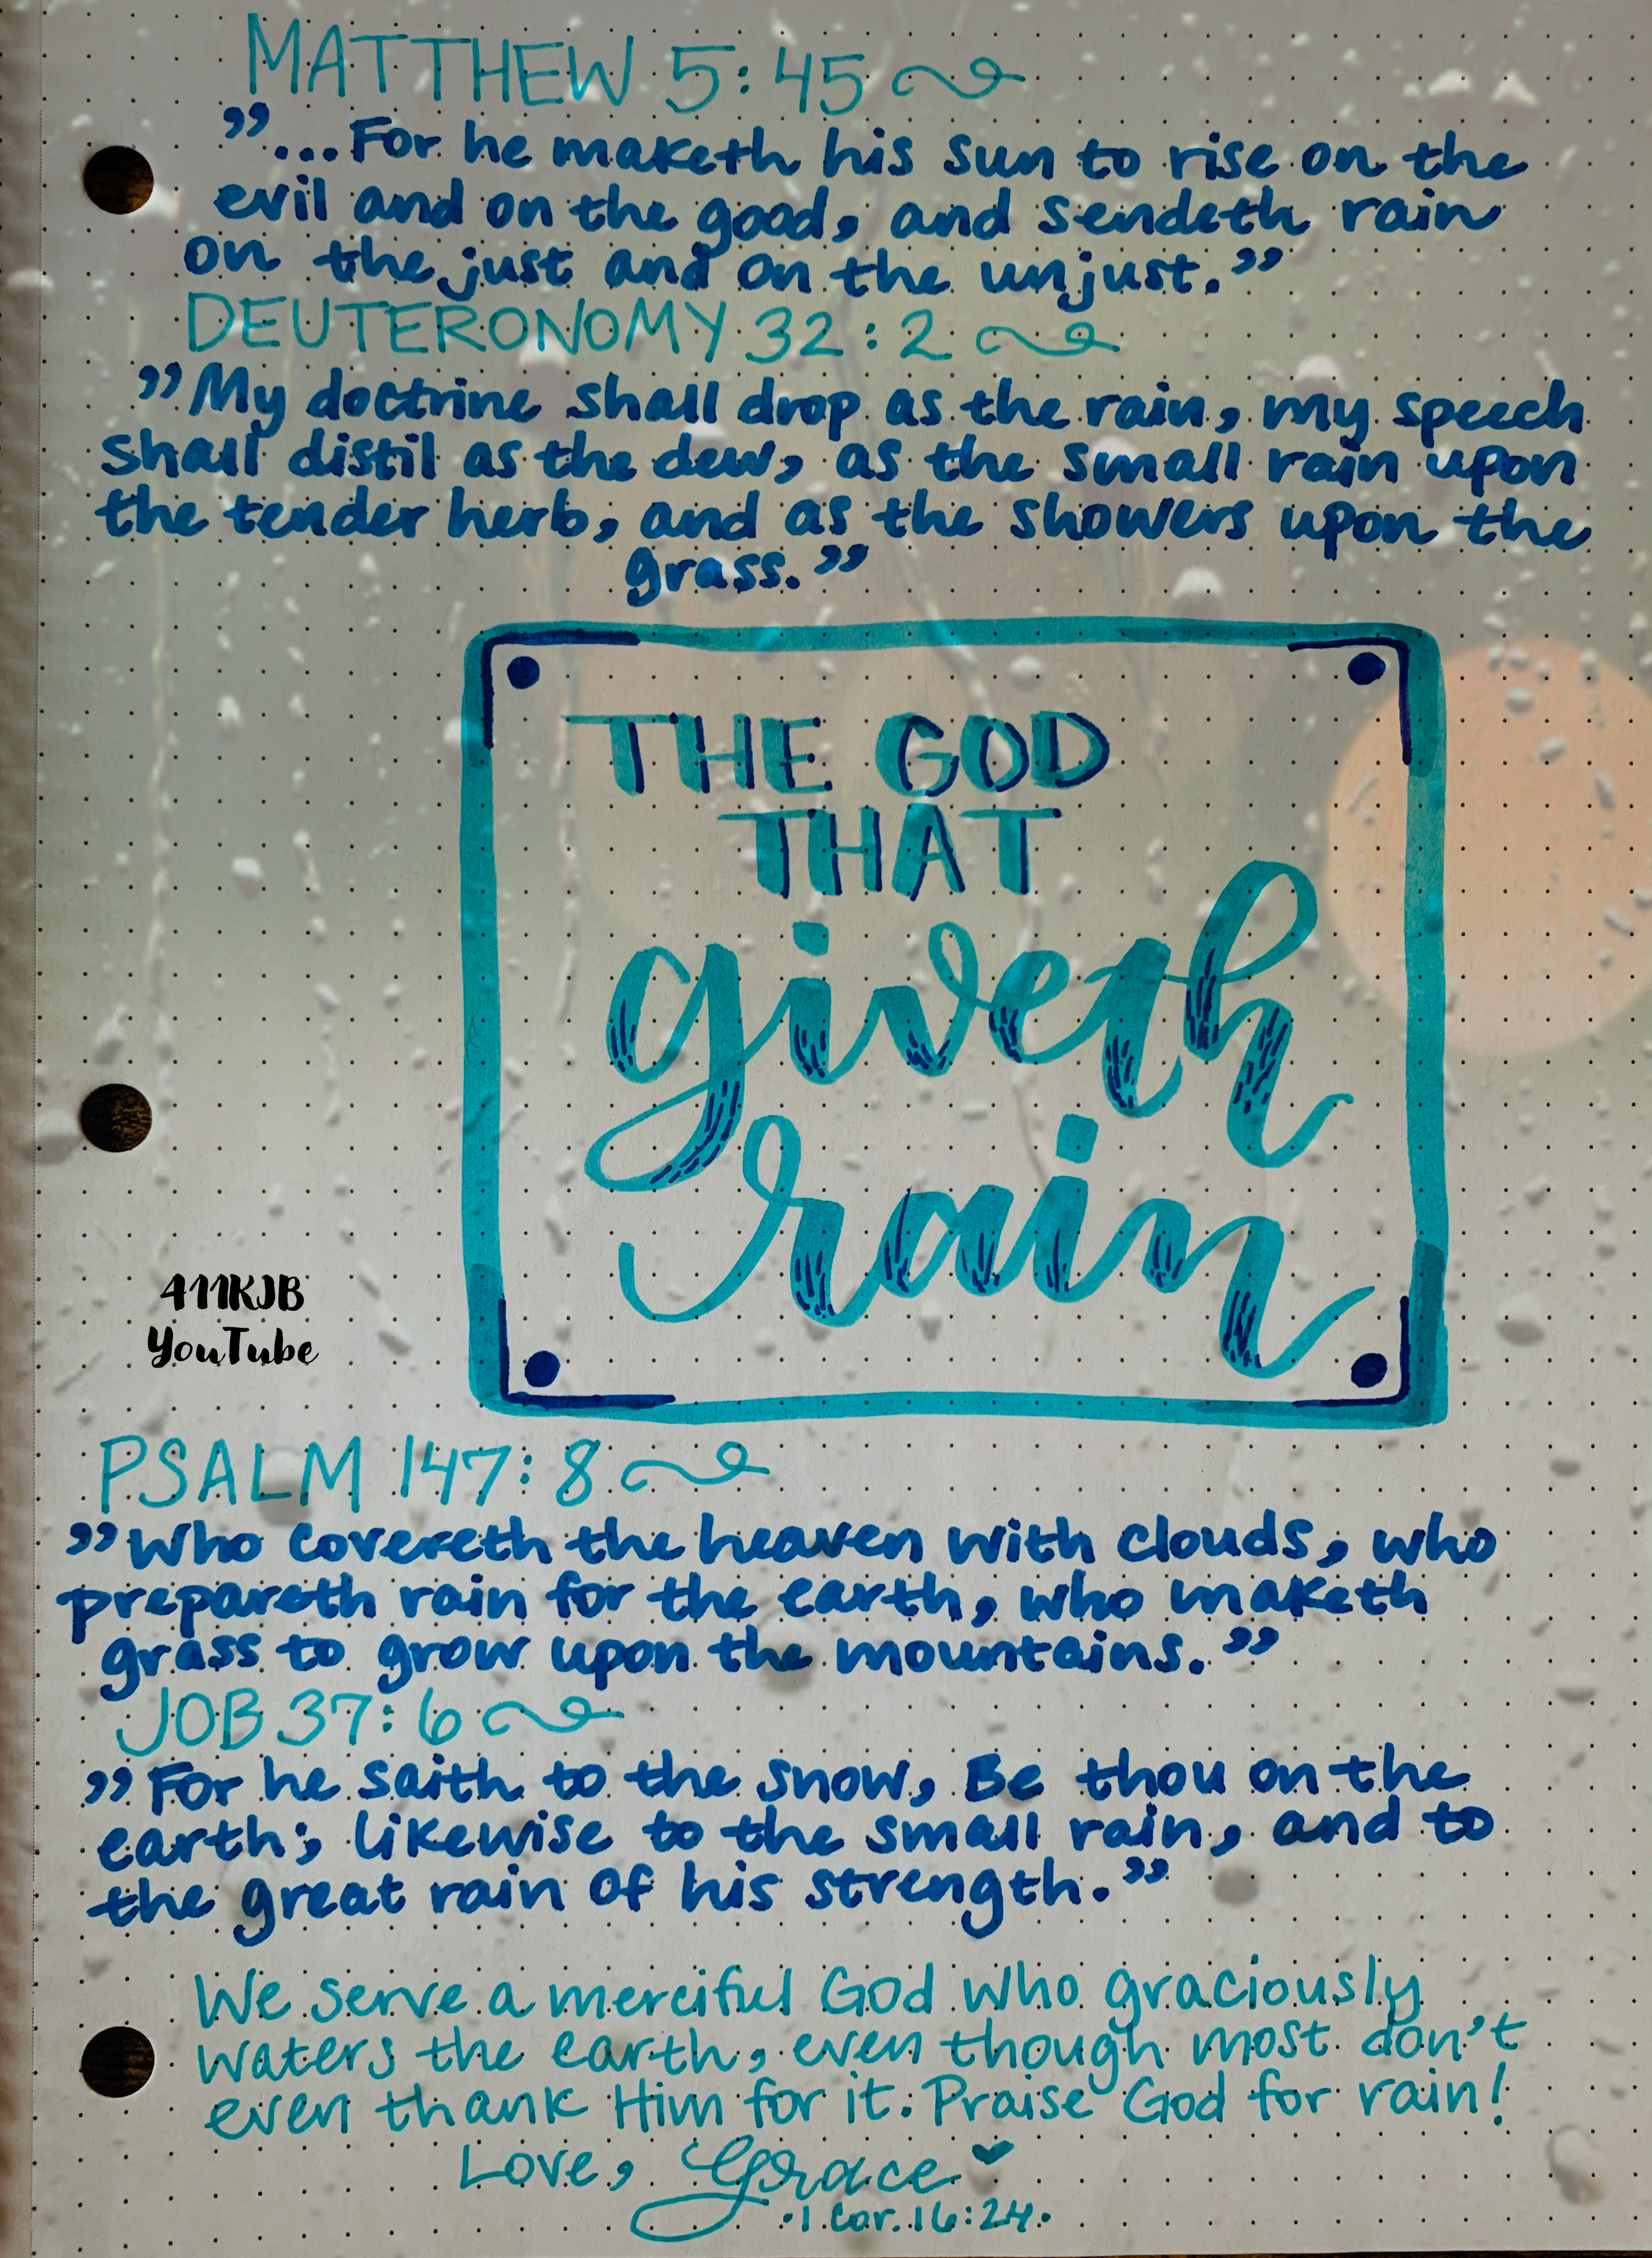 MATTHEW 5:45
”...For he maketh his sun to rise on the
evil and on the good, and sendeth rain
on the just and on the unjust.”
DEUTERONOMY 32:2
”My doctrine shall drop as the rain, my speech
shall distil as the dew, as the small rain upon
the tender herb, and as the showers upon the
grass.”
THE GOD
THAT
giveth
rain
411KJB
YouTube
PSALM 147:8
”Who covereth the heaven with clouds, who
prepareth rain for the earth, who maketh
grass to grow upon the mountains.”
JOB 37:6
”For he saith to the snow, Be thou on the
earth; likewise to the small rain, and to
the great rain of his strength.”
We serve a merciful God who graciously
waters the earth, even though most don't
even thank Him for it. Praise God for rain!
Love, Grace
·1 Cor. 16:24·